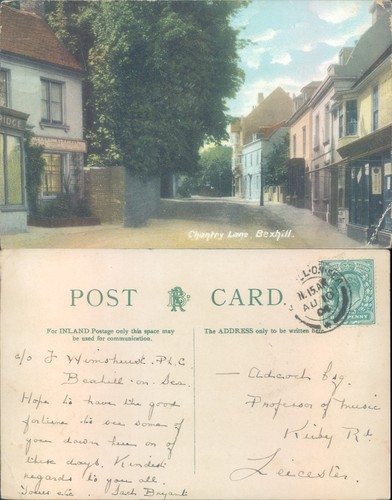 Chantry Lane. Bexhill.
POST CARD.
For INLAND Postage only this space may
be used for communication.
The ADDRESS only to be written here.
c/o J Wimshurst. P.L.C
Bexhill-on-Sea.
Hope to have the good
fortune to see some of
you down here on of
these days. Kindest
regards to you all.
Yours etc. Bryant
Adcock Esq.
Professor of Music
Kirby Rd.
Leicester.
AU 10
PENNY